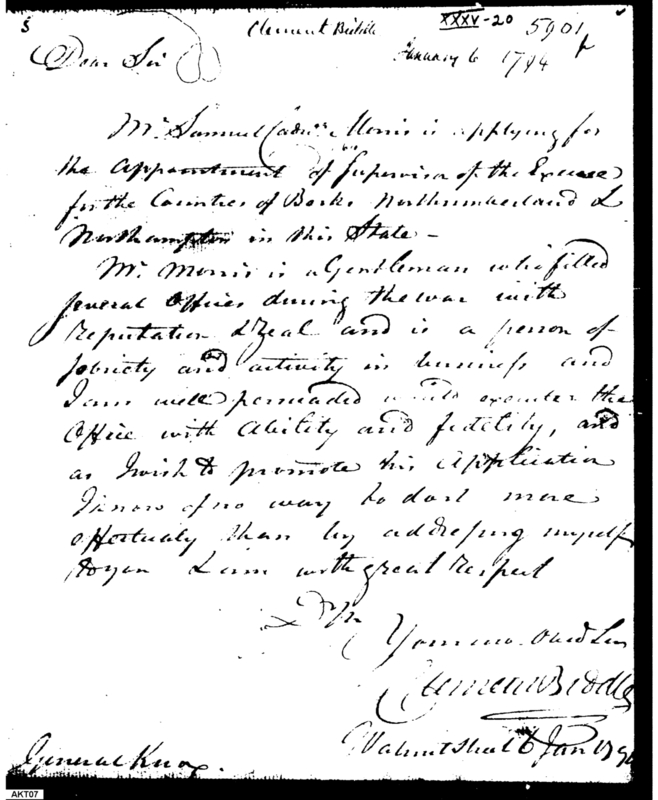 XXXV-20
Clement Biddle 5901
Dear Sir January 6 1794
Mr. Samuel Cadwr. Morris is applying for
the appointment of Supervisor of the Excise
for the Counties of Berks Northumberland &
Northampton in this State -
Mr. Morris is a Gentleman who filled
several Offices during the war with
Reputation & Zeal and is a person of
sobriety and activity in business and
I am well persuaded would execute the
Office with ability and fidelity, and
as I wish to promote his application
I know of no way to do it more
effectualy than by addressing myself
to you I am with great respect
Your mo. Obed Ser
Clement Biddle
Walnut Street 6 Jan 1794
General Knox
AKT07